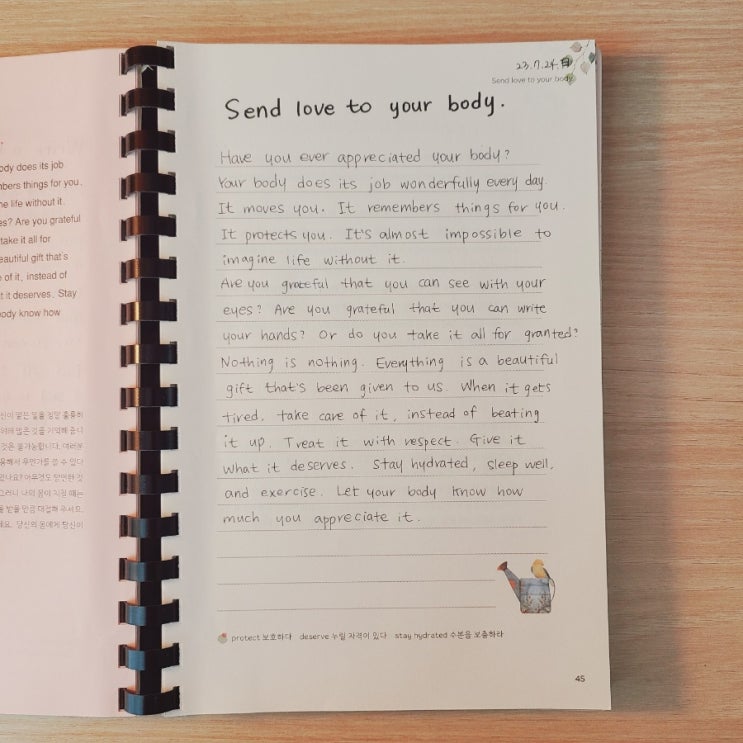 ody does its job
mbers things for you.
ne life without it.
es? Are you grateful
take it all for
eautiful gift that's
e of it, instead of
t it deserves. Stay
ody know how
일을 정말 훌륭히
많은 것을 기억해 줍니
것은 불가능합니다. 여러분
무언가를 쓸 수 있다
아무것도 당연한 것
그러니 나의 몸이 지칠 때는
을 받을 만큼 대접해 주세요.
세요. 당신의 몸에게 당신이
23.7.24.
Send love to your body
Send love to your body.
Have you ever appreciated your body?
Your body does its job wonderfully every day.
It moves you. It remembers things for you.
It protects you. It's almost impossible to
imagine life without it.
Are you grateful that you can see with your
eyes? Are you grateful that you can write
your hands? Or do you take it all for granted?
Nothing is nothing. Everything is a beautiful
gift that's been given to us. When it gets
tired, take care of it, instead of beating
it up. Treat it with respect. Give it
what it deserves. Stay hydrated, sleep well,
and exercise. Let your body know how
much you appreciate it.
protect 보호하다 deserve 누릴 자격이 있다 stay hydrated 수분을 보충하라
45